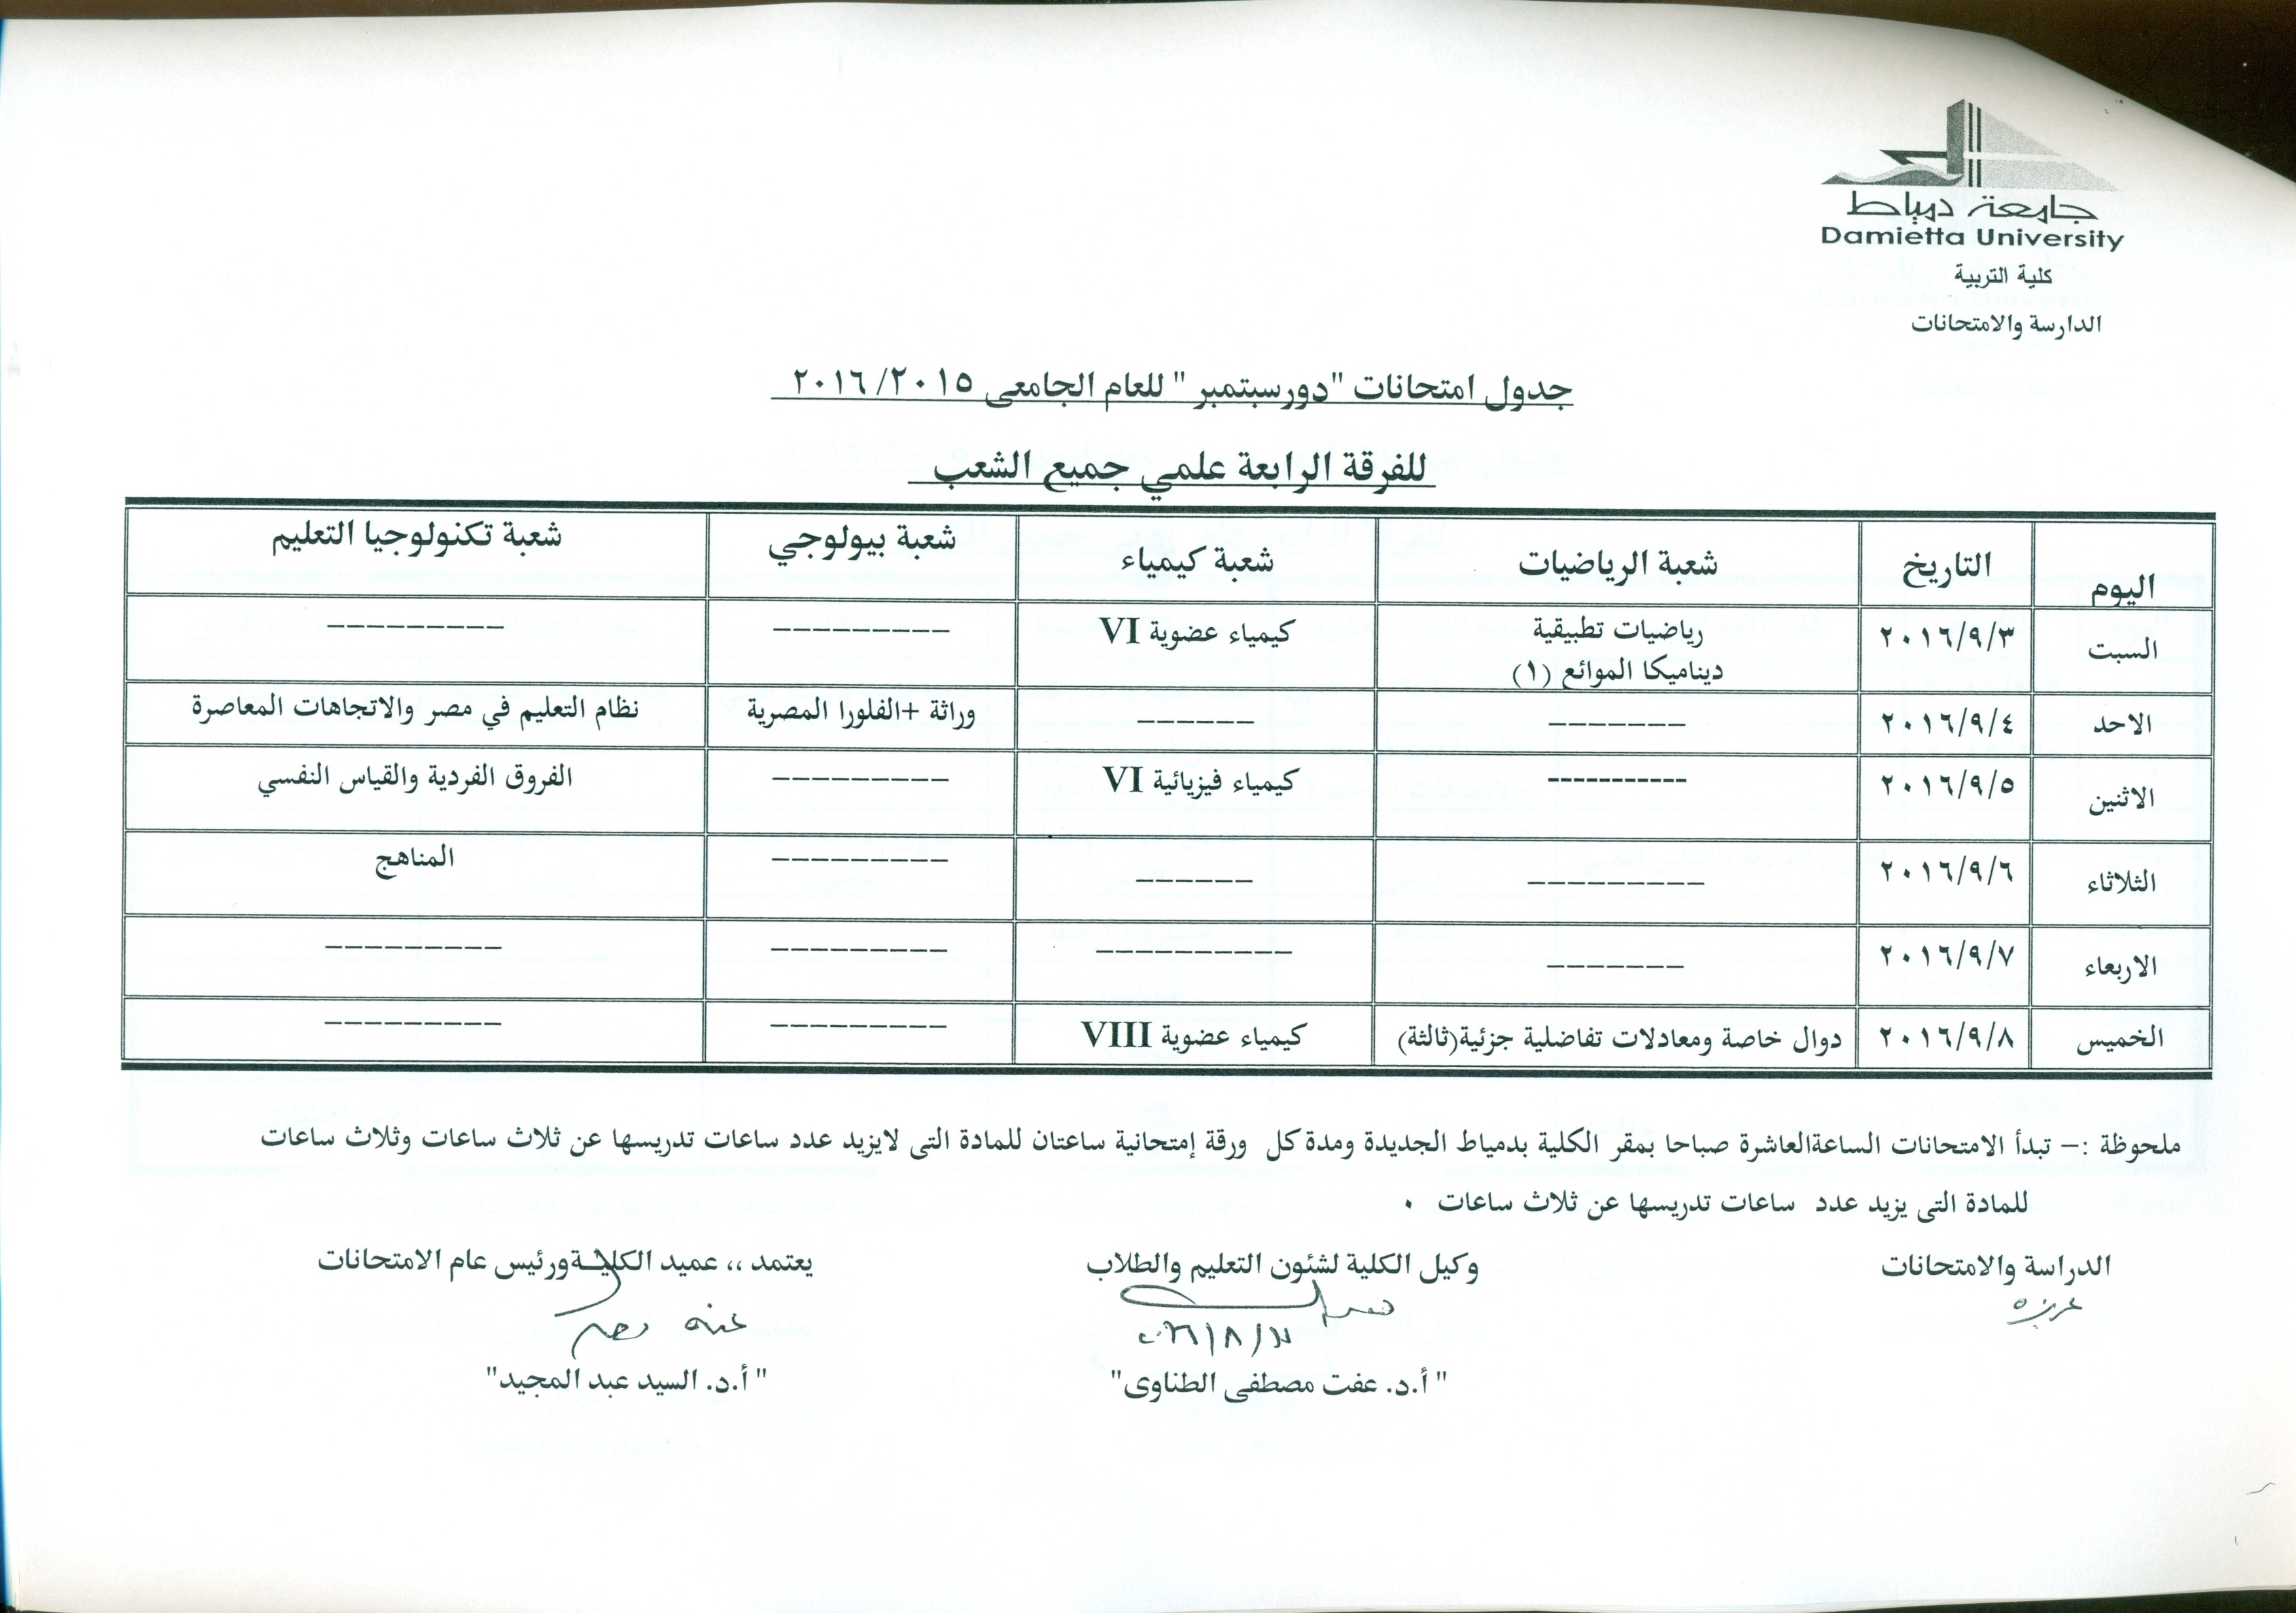 جامعة دمياط
Damietta University
كلية التربية
الدارسة والامتحانات
جدول امتحانات "دورسبتمبر " للعام الجامعى ٢٠١٥/ ٢٠١٦
للفرقة الرابعة علمي جميع الشعب
اليوم التاريخ شعبة الرياضيات شعبة كيمياء شعبة بيولوجي شعبة تكنولوجيا التعليم
السبت ٢٠١٦/٩/٣ رياضيات تطبيقية كيمياء عضوية VI ---------- ----------
ديناميكا الموائع (١)
الاحد ٢٠١٦/٩/٤ ------- ------ وراثة +الفلورا المصرية نظام التعليم في مصر والاتجاهات المعاصرة
الاثنين ٢٠١٦/٩/٥ ----------- كيمياء فيزيائية VI --------- الفروق الفردية والقياس النفسي
الثلاثاء ٢٠١٦/٩/٦ --------- ------ --------- المناهج
الاربعاء ٢٠١٦/٩/٧ ------- ---------- --------- ---------
الخميس ٢٠١٦/٩/٨ دوال خاصة ومعادلات تفاضلية جزئية(ثالثة) كيمياء عضوية VIII --------- ---------
ملحوظة :– تبدأ الامتحانات الساعةالعاشرة صباحا بمقر الكلية بدمياط الجديدة ومدة كل ورقة إمتحانية ساعتان للمادة التى لايزيد عدد ساعات تدريسها عن ثلاث ساعات وثلاث ساعات
للمادة التى يزيد عدد ساعات تدريسها عن ثلاث ساعات ٠
الدراسة والامتحانات وكيل الكلية لشئون التعليم والطلاب يعتمد ،، عميد الكليةورئيس عام الامتحانات
" أ.د. عفت مصطفى الطناوى" " أ.د. السيد عبد المجيد"